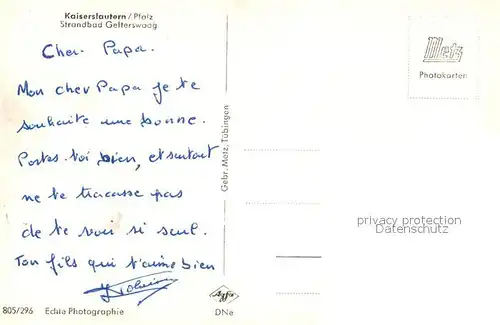 Kaiserslautern / Pfalz
Strandbad Gelterswoog
Cher Papa.
Mon cher Papa je te
souhaite une bonne.
Portes-toi bien, et surtout
ne te tracasse pas
de te voir si seul.
Ton fils qui t'aime bien
805/296 Echte Photographie
Gebr. Metz, Tübingen
Agfa
DNe
Metz
Photokarten
privacy protection
Datenschutz